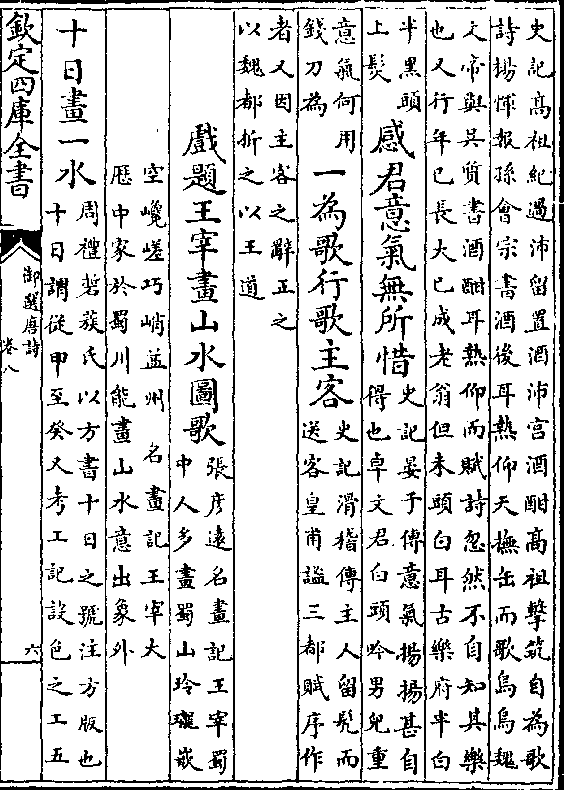 史記髙祖紀過沛留置酒沛宮酒酣髙祖擊筑自為歌
詩楊惲報孫會宗書酒後耳熱仰天撫缶而歌烏烏魏
文帝與吳質書酒酣耳熱仰而賦詩忽然不自知其樂
也又行年已長大已成老翁但未頭白耳古樂府半白
半黑頭
上髮
感君意氣無所惜
史記晏子傳意氣揚揚甚自
得也卓文君白頭吟男兒重
意氣何用
錢刀為
一為歌行歌主客
史記滑稽傳主人留髠而
送客皇甫謐三都賦序作
者又因主客之辭正之
以魏都折之以王道
戲題王宰畫山水圖歌
張彦逺名畫記王宰蜀
中人多畫蜀山玲瓏嵌
空巉嵯巧峭益州 名畫記王宰大
厯中家於蜀川能畫山水意出象外
十日畫一水
周禮硩蔟氏以方書十日之號注方版也
十日謂從甲至癸又考工記設色之工五
欽定四庫全書
御選唐詩
卷八
六